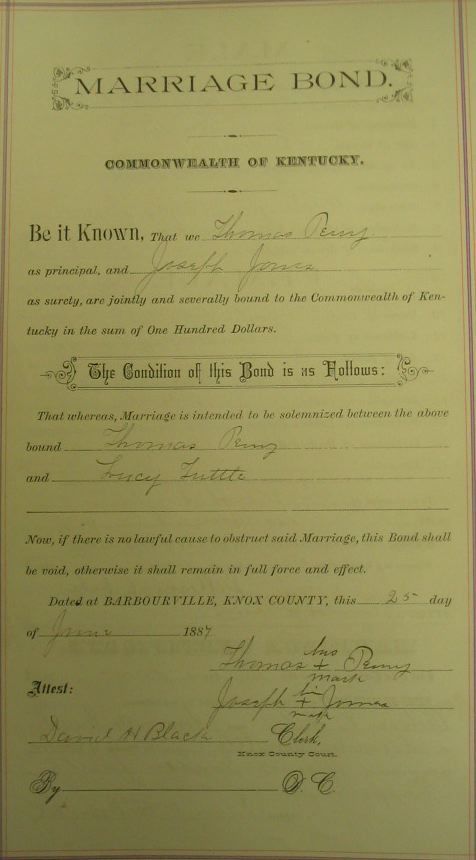 MARRIAGE BOND.
COMMONWEALTH OF KENTUCKY.
Be it Known, That we Thomas Perry
as principal, and Joseph Jones
as surety, are jointly and severally bound to the Commonwealth of Ken-
tucky in the sum of One Hundred Dollars.
The Condition of this Bond is as Follows:
That whereas, Marriage is intended to be solemnized between the above
bound Thomas Perry
and Lucy Tuttle
Now, if there is no lawful cause to obstruct said Marriage, this Bond shall
be void, otherwise it shall remain in full force and effect.
Dated at BARBOURVILLE, KNOX COUNTY, this 25 day
of June 1887
his
Thomas + Perry
mark
Attest:
his
Joseph + Jones
mark
David H Black Clerk,
Knox County Court.
By D. C.